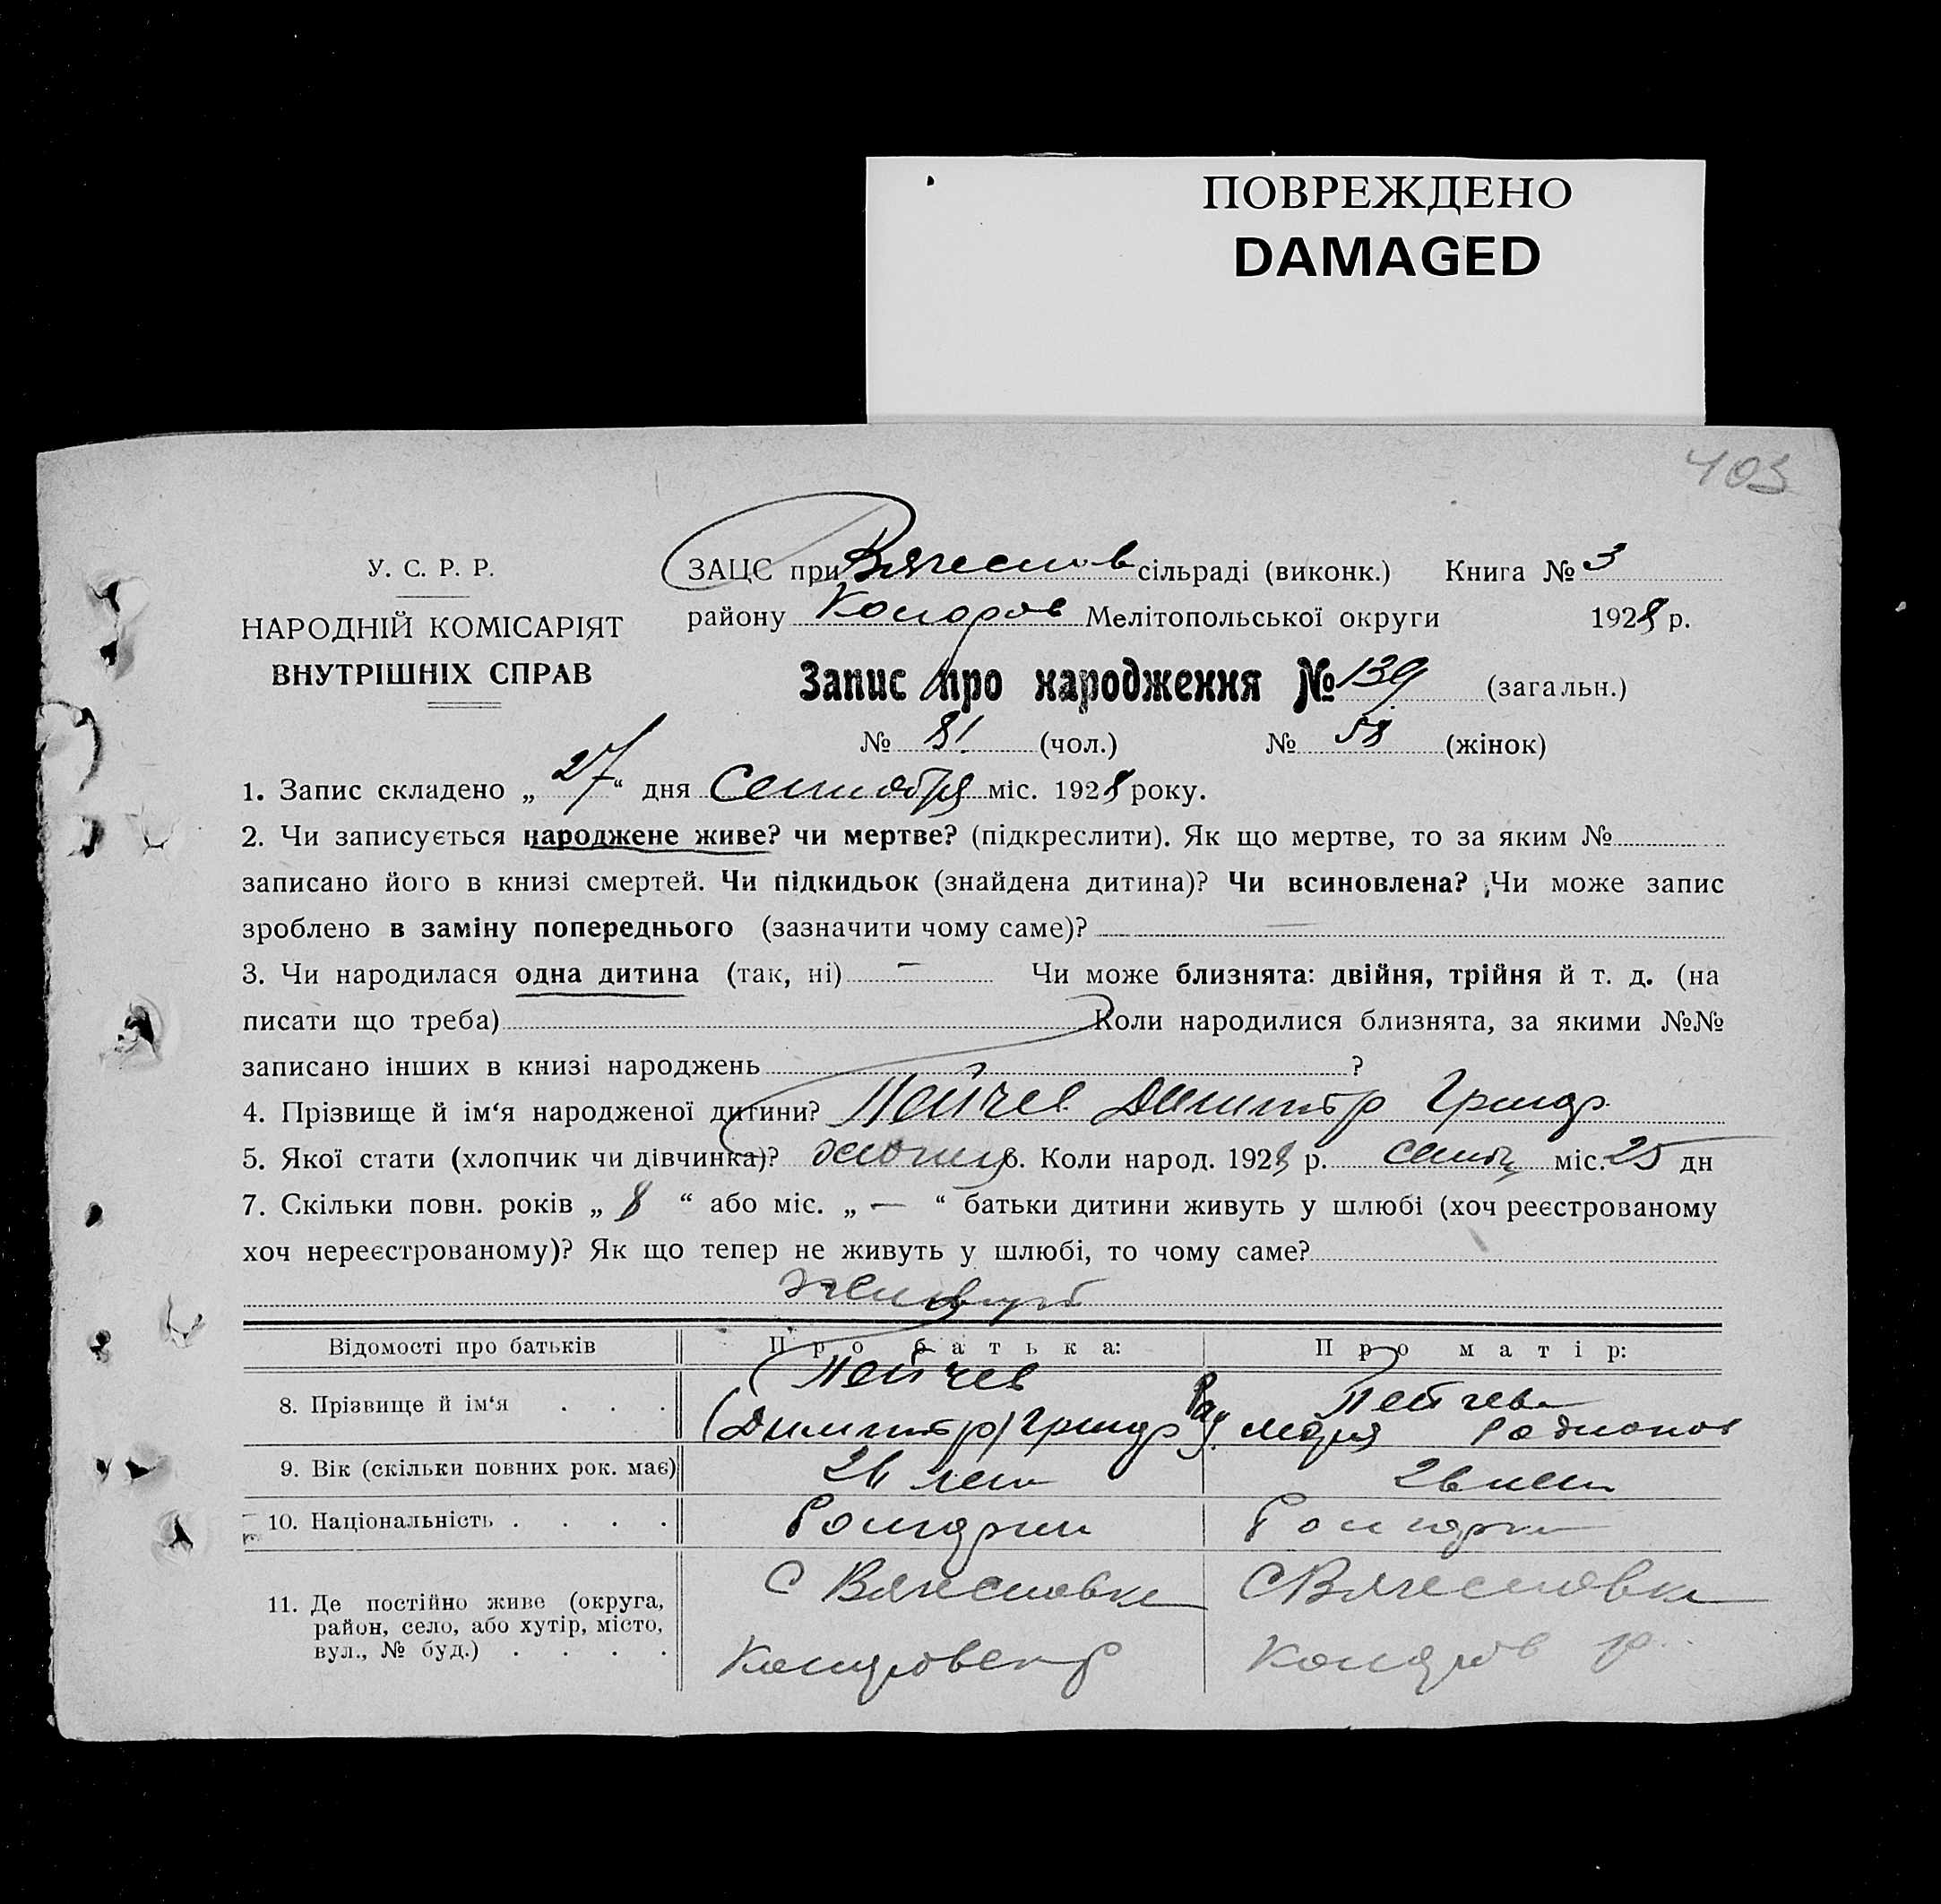 ПОВРЕЖДЕНО
DAMAGED
403
У. С. Р. Р.
НАРОДНІЙ КОМІСАРІЯТ
ВНУТРІШНІХ СПРАВ
ЗАЦС при Вячеслов сільраді (виконк.) Книга № 3
району Мелітопольської округи 1928 р.
Запис про народження № 139 (загальн.)
№ 81 (чол.) № 58 (жінок)
1. Запис складено „ 27 “ дня Сентября міс. 1928 року.
2. Чи записується народжене живе? чи мертве? (підкреслити). Як що мертве, то за яким №
записано його в книзі смертей. Чи підкидьок (знайдена дитина)? Чи всиновлена? Чи може запис
зроблено в заміну попереднього (зазначити чому саме)? —
3. Чи народилася одна дитина (так, ні) — Чи може близнята: двійня, трійня й т. д. (на
писати що треба) Коли народилися близнята, за якими №№
записано інших в книзі народжень ?
4. Прізвище й ім‘я народженої дитини? Пейчев Димитр
5. Якої стати (хлопчик чи дівчинка)? 6. Коли народ. 1928 р. міс. 25 дн
7. Скільки повн. років „ 8 “ або міс. „ — “ батьки дитини живуть у шлюбі (хоч реєстрованому
хоч нереєстрованому)? Як що тепер не живуть у шлюбі, то чому саме?
живут
Відомості про батьків Про батька: Про матір:
Пейчев Пейчева
8. Прізвище й ім‘я . . . (Димитр) Мария Родионов
9. Вік (скільки повних рок. має) 26 лет 26 лет
10. Національність . . . .
11. Де постійно живе (округа, С Вячеславка С Вячеславка
район, село, або хутір, місто,
вул., № буд.) . . . . р.